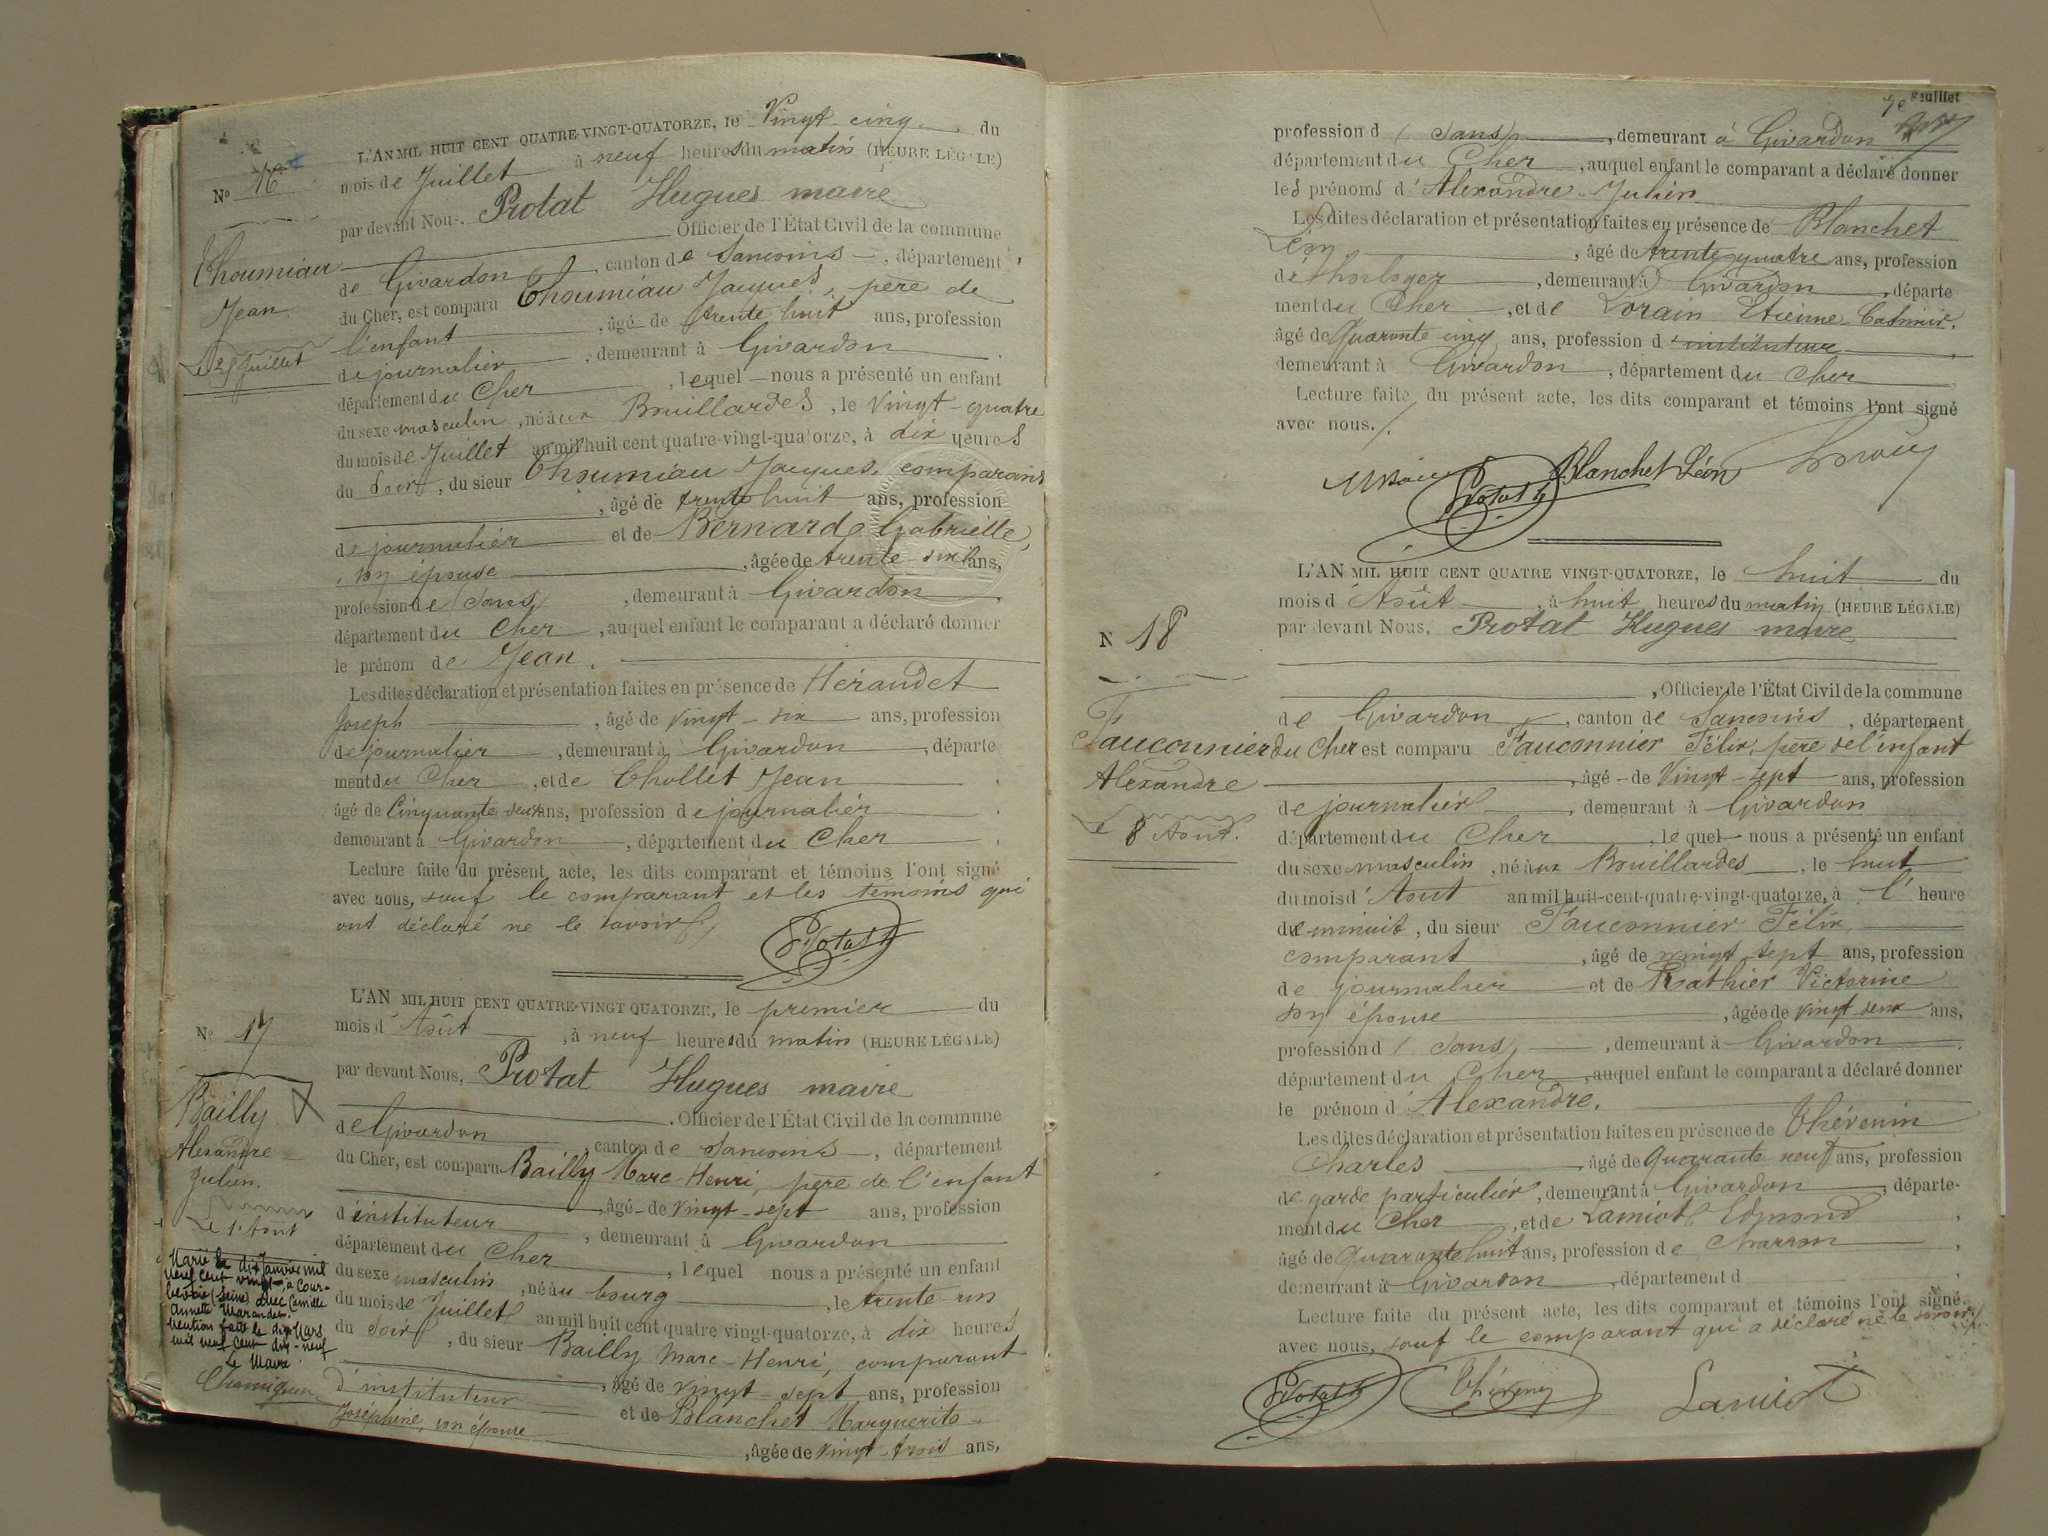 L'AN MIL HUIT CENT QUATRE-VINGT-QUATORZE, le Vingt-cinq du
No 16
mois de Juillet à neuf heures du matin (HEURE LÉGALE)
par devant Nous, Protat Hugues maire
Officier de l'État Civil de la commune
Thoumiau
Jean.
Le 25 Juillet
de Givardon, canton de Sancoins, département
du Cher, est comparu Thoumiau Jacques, père de
l'enfant, âgé de trente huit ans, profession
de journalier, demeurant à Givardon
département du Cher, lequel nous a présenté un enfant
du sexe masculin, né aux Bouillardes, le vingt-quatre
du mois de Juillet an mil huit cent quatre-vingt-quatorze, à dix heures
du soir, du sieur Thoumiau Jacques, comparant
, âgé de trente huit ans, profession
de journalier et de Bernard Gabrielle,
son épouse, âgée de trente-six ans,
profession de sans, demeurant à Givardon
département du Cher, auquel enfant le comparant a déclaré donner
le prénom de Jean.
Les dites déclaration et présentation faites en présence de Héraudet
Joseph, âgé de vingt-six ans, profession
de journalier, demeurant à Givardon, départe
ment du Cher, et de Chollet Jean
âgé de Cinquante deux ans, profession de journalier
demeurant à Givardon, département du Cher
Lecture faite du présent acte, les dits comparant et témoins l'ont signé
avec nous, sauf le comparant et les témoins qui
ont déclaré ne le savoir
Protat h
L'AN MIL HUIT CENT QUATRE-VINGT QUATORZE, le premier du
No 17
mois d'Août, à neuf heures du matin (HEURE LÉGALE)
par devant Nous, Protat Hugues maire
Officier de l'État Civil de la commune
Bailly
Alexandre
Julien.
Le 1er Août
de Givardon, canton de Sancoins, département
du Cher, est comparu Bailly Marc-Henri, père de l'enfant
, âgé de vingt-sept ans, profession
d'instituteur, demeurant à Givardon
département du Cher, lequel nous a présenté un enfant
du sexe masculin, né au bourg, le trente-un
du mois de Juillet an mil huit cent quatre vingt-quatorze, à dix heures
du soir, du sieur Bailly Marc-Henri, comparant
, âgé de vingt-sept ans, profession
d'instituteur et de Blanchet Marguerite
Joséphine, son épouse, âgée de vingt-trois ans,
Marié le dix Janvier mil
neuf cent vingt, à Cour-
bevoie (Seine) avec Camille
Annette Marandet.
Mention faite le dix Mars
mil neuf cent dix-neuf
Le Maire
feuillet
profession d sans, demeurant à Givardon
département du Cher, auquel enfant le comparant a déclaré donner
les prénoms d'Alexandre-Julien
Les dites déclaration et présentation faites en présence de Blanchet
Léon, âgé de trente quatre ans, profession
d'horloger, demeurant à Givardon, départe
ment du Cher, et de Lorain Etienne Casimir,
âgé de Quarante cinq ans, profession d'instituteur
demeurant à Givardon, département du Cher
Lecture faite du présent acte, les dits comparant et témoins l'ont signé
avec nous.
Protat h Blanchet Léon
L'AN MIL HUIT CENT QUATRE VINGT-QUATORZE, le huit du
mois d'Août, à huit heures du matin (HEURE LÉGALE)
N 18
par devant Nous, Protat Hugues maire
, Officier de l'État Civil de la commune
Fauconnier
Alexandre
Le 8 Août.
de Givardon, canton de Sancoins, département
du Cher est comparu Fauconnier Félix, père de l'enfant
, âgé de vingt-sept ans, profession
de journalier, demeurant à Givardon
département du Cher, lequel nous a présenté un enfant
du sexe masculin, né aux Bouillardes, le huit
du mois d'Août an mil huit-cent-quatre-vingt-quatorze, à l'heure
de minuit, du sieur Fauconnier Félix,
comparant, âgé de vingt sept ans, profession
de journalier et de Rathier Victorine
son épouse, âgée de vingt deux ans,
profession d sans, demeurant à Givardon
département du Cher, auquel enfant le comparant a déclaré donner
le prénom d'Alexandre.
Les dites déclaration et présentation faites en présence de Thévenin
Charles, âgé de Quarante neuf ans, profession
de garde particulier, demeurant à Givardon, départe-
ment du Cher, et de Lamiot Edmond
âgé de Quarante huit ans, profession de charron
demeurant à Givardon, département d
Lecture faite du présent acte, les dits comparant et témoins l'ont signé
avec nous, sauf le comparant qui a déclaré ne le savoir
Protat h Thévenin Lamiot